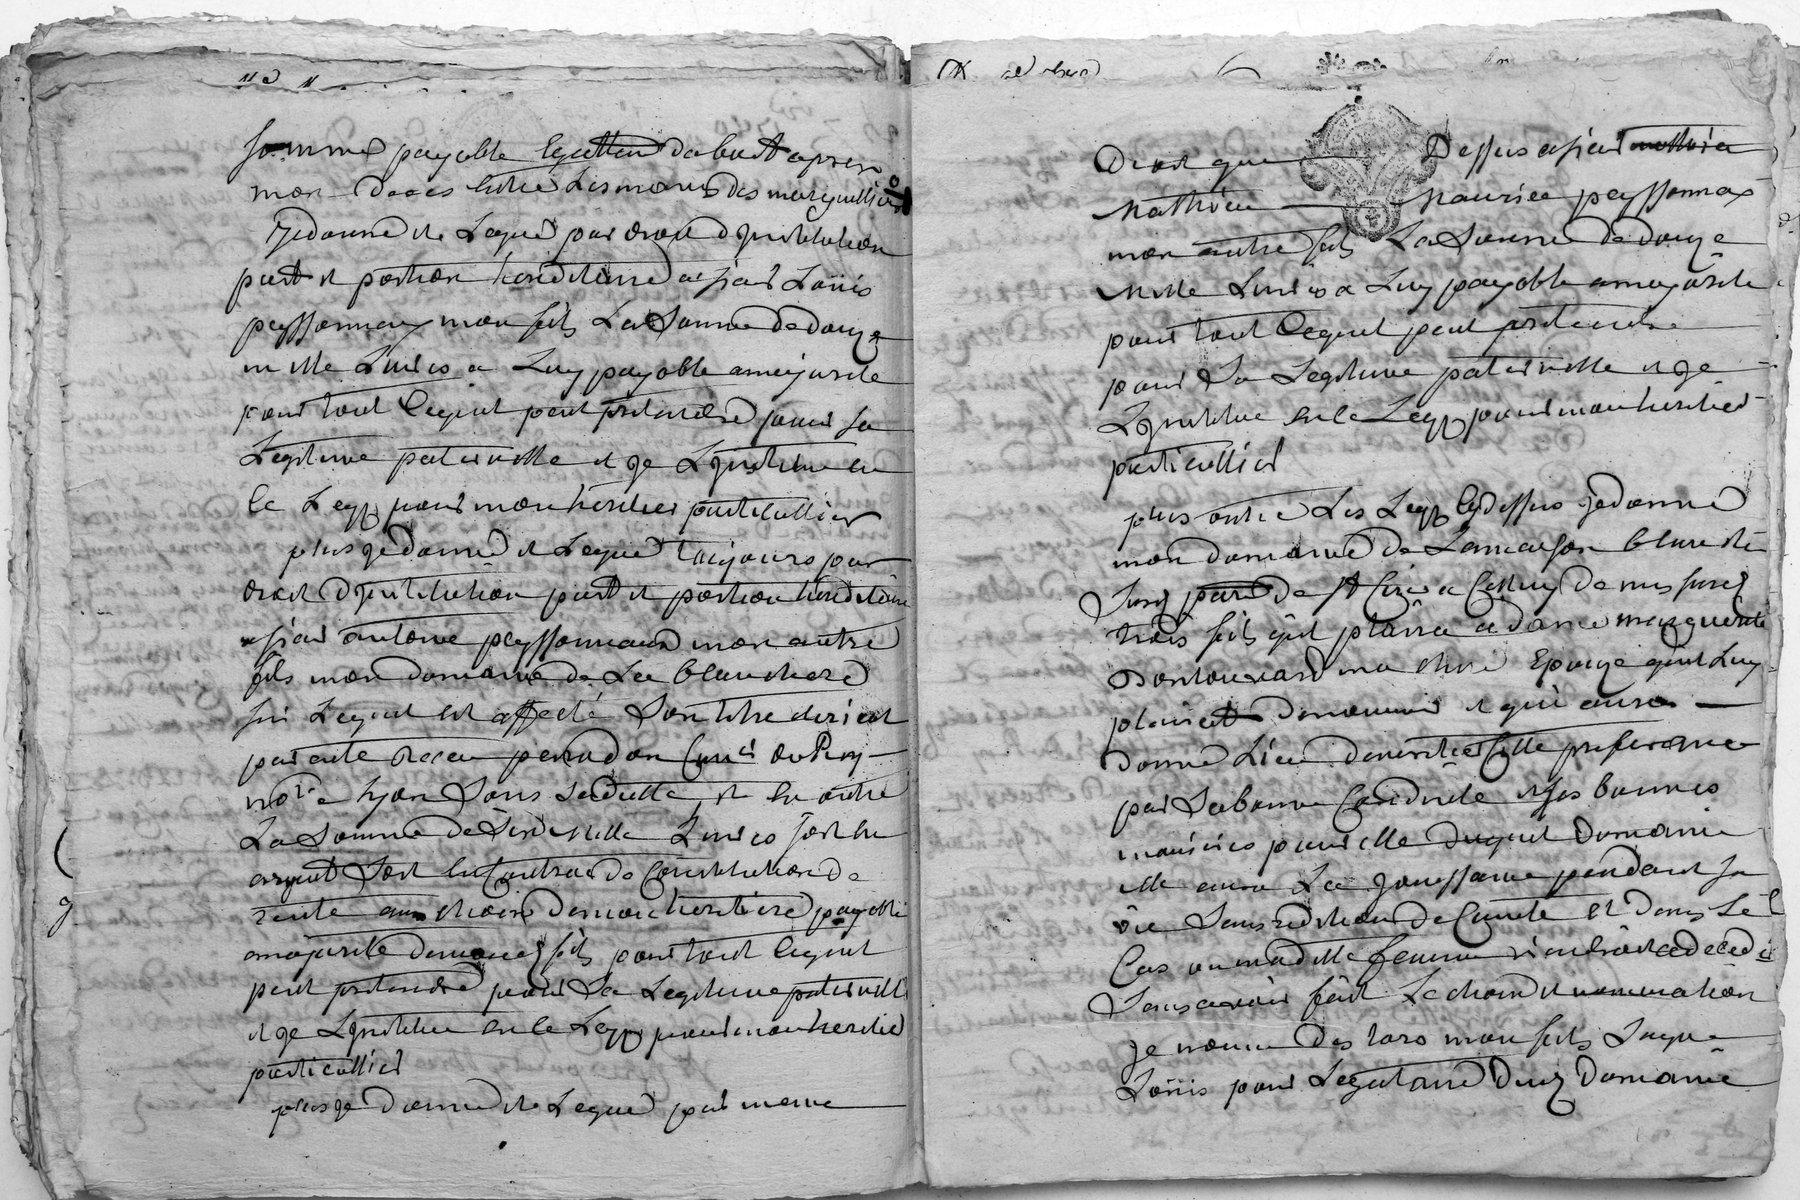 somme payable dabort apres
mon deces entre les mains des marguilliers
Je donne et Legue par droit dInstitution
part et portion hereditaire a sieur Loüis
peyssonnaux mon fils La Somme de douze
mille Livres a Luy payable a majorité
pour tout ce quil peut pretendre pour sa
Legitime paternelle et Je Linstitue en
ce Legz pour mon heritier particullier
plus Je donne et Legue toujours par
droit dInstitution part et portion hereditaire
a sieur antoine peyssonnaux mon autre
fils mon domaine de La blanchere
sur Lequel est affecté Son titre clerical
par acte receu par
nore a lyon Sans et en outre
La Somme de Six mille Livres soit en
argent Soit en Contrac de Constitution de
rente au choix de mon heritiere payable
a majorité de mond fils pour tout ce quil
peut pretendre pour Sa Legitime paternelle
et Je Linstitue en ce Legz pour mon heritier
particullier
plus Je donne et Legue par meme
droit que Dessus a sieur
Mathieu Maurice peyssonnaux
mon autre fils La Somme de douze
Mille Livres a Luy payable a majorité
pour tout ce quil peut pretendre
pour Sa Legitime paternelle et Je
Linstitue en ce Legz pour mon heritier
particullier
plus outre Les Legz cy dessus Je donne
mon domaine de La maison blanche
de St a Celluy de mes susd
trois fils quil plaira a dame marguerite
ma chere Epouze quil Luy
plairat de nommer et qui aura
donné Lieu de meriter cette preference
par Sa bonne Conduite et ses bonnes
manieres pour elle duquel Domaine
elle aura La Jouissance pendant sa
vie Sans redition de Compte et dans Le
Cas ou madtte femme viendroit a deceder
Sans avoir fait Le choix et nommation
Je nomme des lors mon fils
Loüis pour Legataire dud Domaine